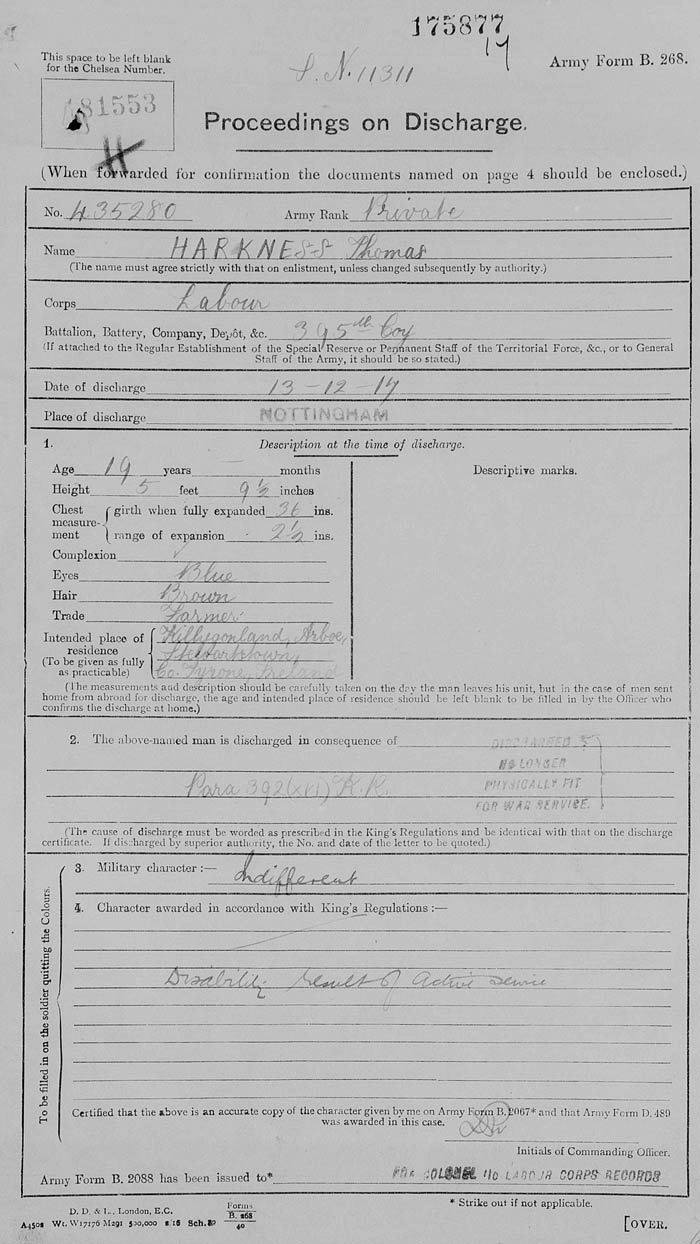 175877
17
This space to be left blank
for the Chelsea Number.
S. N. 11311
Army Form B. 268.
81553
Proceedings on Discharge.
H
(When forwarded for confirmation the documents named on page 4 should be enclosed.)
No. 435280 Army Rank Private
Name HARKNESS Thomas
(The name must agree strictly with that on enlistment, unless changed subsequently by authority.)
Corps Labour
Battalion, Battery, Company, Depôt, &c. 395th Coy
(If attached to the Regular Establishment of the Special Reserve or Permanent Staff of the Territorial Force, &c., or to General
Staff of the Army, it should be so stated.)
Date of discharge 13-12-17
Place of discharge NOTTINGHAM
1. Description at the time of discharge.
Age 19 years months
Descriptive marks.
Height 5 feet 9½ inches
Chest measure-ment { girth when fully expanded 36 ins.
range of expansion 2½ ins.
Complexion
Eyes Blue
Hair Brown
Trade Farmer
Intended place of residence (To be given as fully as practicable) { Killygonland, Arboe,
Stewartstown,
Co. Tyrone, Ireland
(The measurements and description should be carefully taken on the day the man leaves his unit, but in the case of men sent
home from abroad for discharge, the age and intended place of residence should be left blank to be filled in by the Officer who
confirms the discharge at home.)
2. The above-named man is discharged in consequence of DISCHARGED
NO LONGER
Para 392 (XVI) K.R. PHYSICALLY FIT
FOR WAR SERVICE.
(The cause of discharge must be worded as prescribed in the King's Regulations and be identical with that on the discharge
certificate. If discharged by superior authority, the No. and date of the letter to be quoted.)
To be filled in on the soldier quitting the Colours.
3. Military character :— Indifferent
4. Character awarded in accordance with King's Regulations :—
Disability Result of Active Service
Certified that the above is an accurate copy of the character given by me on Army Form B. 2067* and that Army Form D. 489
was awarded in this case.
Initials of Commanding Officer.
Army Form B. 2088 has been issued to* FOR COLONEL I/C LABOUR CORPS RECORDS
* Strike out if not applicable.
D. D. & L., London, E.C. Forms
A4508 Wt. W17176 M291 500,000 8/16 Sch. 80 B. 268
40
[OVER.